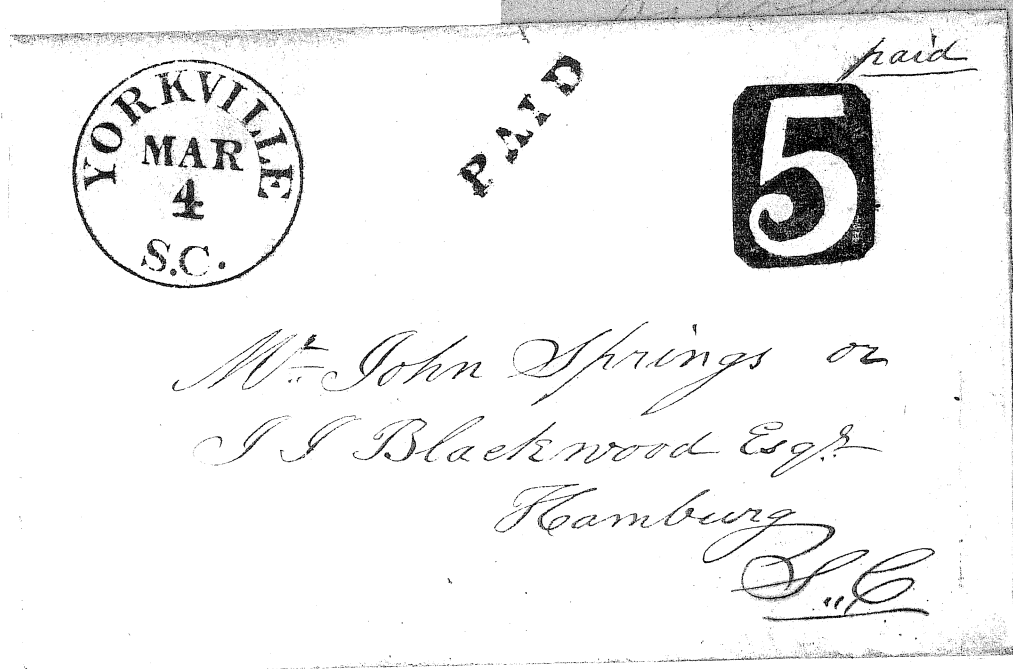 paid
YORKVILLE
MAR
4
S.C.
PAID
5
Mr. John Springs or
J J Blackwood Esqr.
Hamburg
S,,C